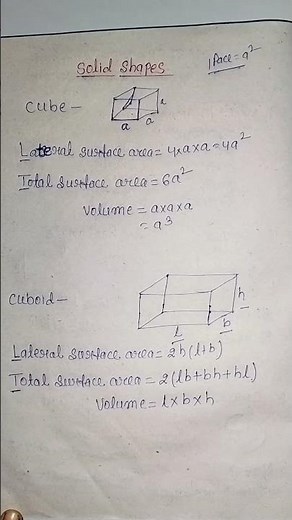 Solid Shapes
1 Face = a²
Cube –
a
a a
Lateral surface area = 4xaxa = 4a²
Total surface area = 6a²
Volume = axaxa
= a³
Cuboid –
h
l b
Lateral surface area = 2h(l+b)
Total surface area = 2(lb+bh+hl)
Volume = l×b×h